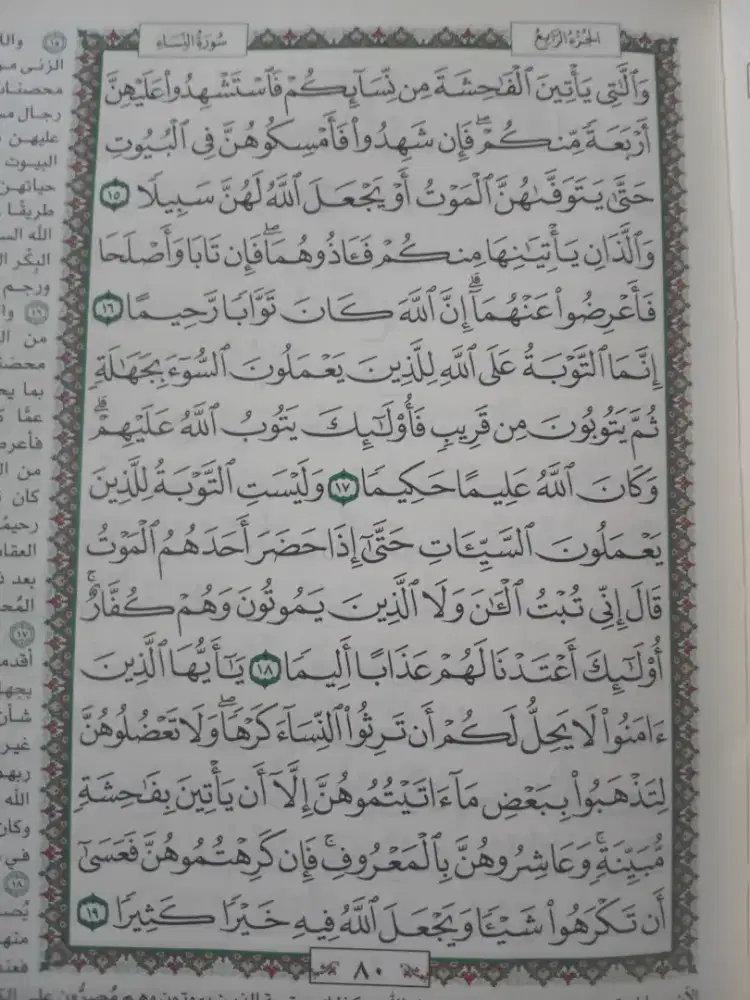 الجزء الرابع
سورة النساء
وَٱلَّٰتِى يَأۡتِينَ ٱلۡفَٰحِشَةَ مِن نِّسَآئِكُمۡ فَٱسۡتَشۡهِدُواْ عَلَيۡهِنَّ
أَرۡبَعَةٗ مِّنكُمۡۖ فَإِن شَهِدُواْ فَأَمۡسِكُوهُنَّ فِى ٱلۡبُيُوتِ
حَتَّىٰ يَتَوَفَّىٰهُنَّ ٱلۡمَوۡتُ أَوۡ يَجۡعَلَ ٱللَّهُ لَهُنَّ سَبِيلٗا ١٥
وَٱلَّذَانِ يَأۡتِيَٰنِهَا مِنكُمۡ فَـَٔاذُوهُمَاۖ فَإِن تَابَا وَأَصۡلَحَا
فَأَعۡرِضُواْ عَنۡهُمَآۗ إِنَّ ٱللَّهَ كَانَ تَوَّابٗا رَّحِيمًا ١٦
إِنَّمَا ٱلتَّوۡبَةُ عَلَى ٱللَّهِ لِلَّذِينَ يَعۡمَلُونَ ٱلسُّوٓءَ بِجَهَٰلَةٖ
ثُمَّ يَتُوبُونَ مِن قَرِيبٖ فَأُوْلَٰٓئِكَ يَتُوبُ ٱللَّهُ عَلَيۡهِمۡۗ
وَكَانَ ٱللَّهُ عَلِيمًا حَكِيمٗا ١٧ وَلَيۡسَتِ ٱلتَّوۡبَةُ لِلَّذِينَ
يَعۡمَلُونَ ٱلسَّيِّـَٔاتِ حَتَّىٰٓ إِذَا حَضَرَ أَحَدَهُمُ ٱلۡمَوۡتُ
قَالَ إِنِّى تُبۡتُ ٱلۡـَٰٔنَ وَلَا ٱلَّذِينَ يَمُوتُونَ وَهُمۡ كُفَّارٌۚ
أُوْلَٰٓئِكَ أَعۡتَدۡنَا لَهُمۡ عَذَابًا أَلِيمٗا ١٨ يَٰٓأَيُّهَا ٱلَّذِينَ
ءَامَنُواْ لَا يَحِلُّ لَكُمۡ أَن تَرِثُواْ ٱلنِّسَآءَ كَرۡهٗاۖ وَلَا تَعۡضُلُوهُنَّ
لِتَذۡهَبُواْ بِبَعۡضِ مَآ ءَاتَيۡتُمُوهُنَّ إِلَّآ أَن يَأۡتِينَ بِفَٰحِشَةٖ
مُّبَيِّنَةٖۚ وَعَاشِرُوهُنَّ بِٱلۡمَعۡرُوفِۚ فَإِن كَرِهۡتُمُوهُنَّ فَعَسَىٰٓ
أَن تَكۡرَهُواْ شَيۡـٔٗا وَيَجۡعَلَ ٱللَّهُ فِيهِ خَيۡرٗا كَثِيرٗا ١٩
٨٠
١٥
الزنى
محصنات
رجال
عليهن
البيوت
حياتهن
طريقًا
الله
البكر
ورجم
١٦
من
بما
عمّا
من
كان
بعد
١٧
شأن
غير
الله
وكان
في
١٨